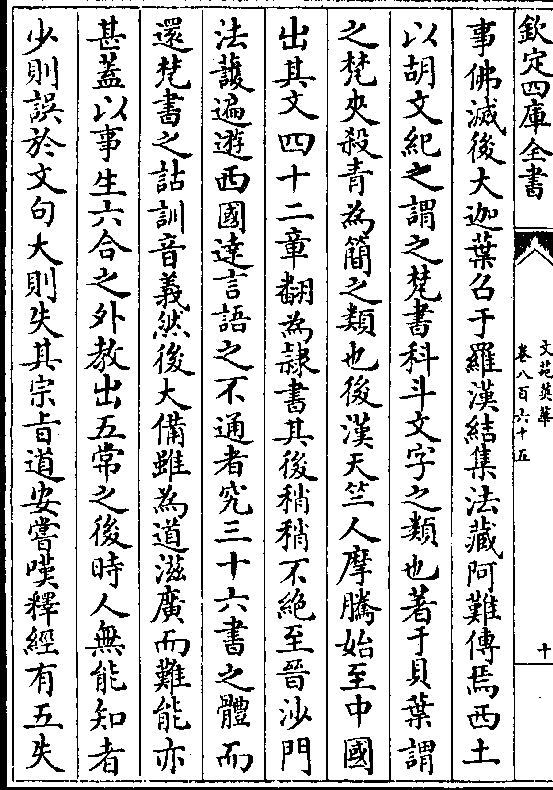 欽定四庫全書
文苑英華
卷八百六十五
十
事佛滅後大迦葉召千羅漢結集法藏阿難傳焉西土
以胡文紀之謂之梵書科斗文字之類也著于貝葉謂
之梵夾殺青為簡之類也後漢天竺人摩騰始至中國
出其文四十二章翻為隷書其後稍稍不絶至晉沙門
法護遍遊西國達言語之不通者究三十六書之體而
還梵書之詁訓音義然後大備雖為道滋廣而難能亦
甚蓋以事生六合之外教出五常之後時人無能知者
少則誤於文句大則失其宗旨道安嘗嘆釋經有五失